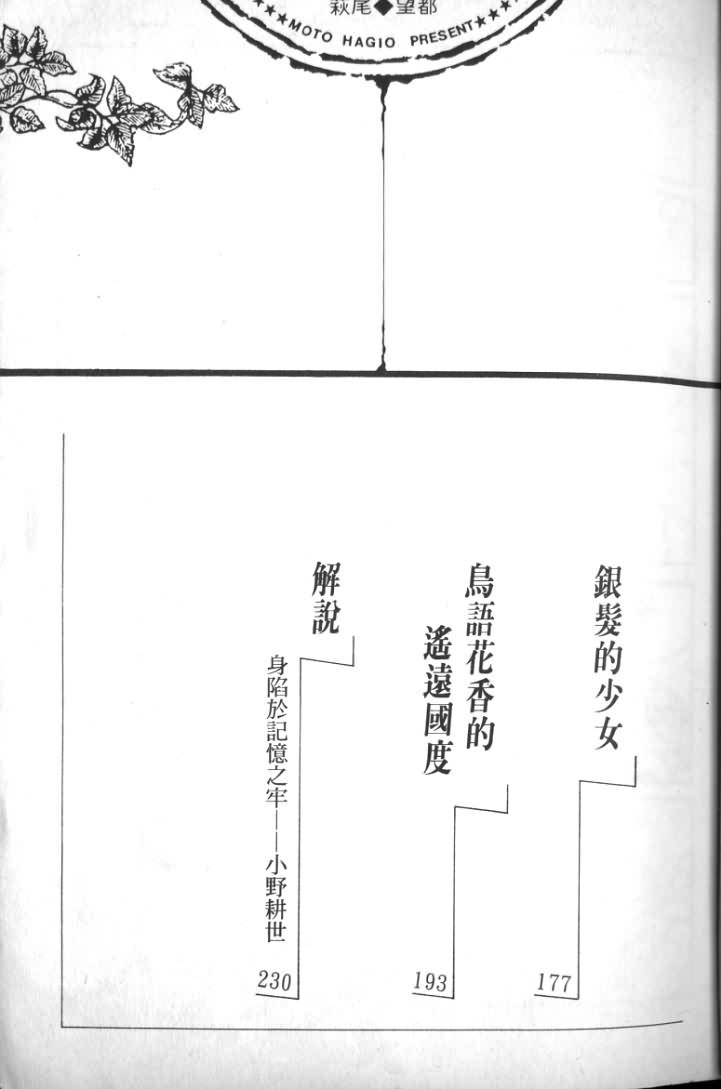 萩尾◆望都
★★★MOTO HAGIO PRESENT★★★
銀髮的少女
177
鳥語花香的
遙遠國度
193
解說
身陷於記憶之牢——小野耕世
230